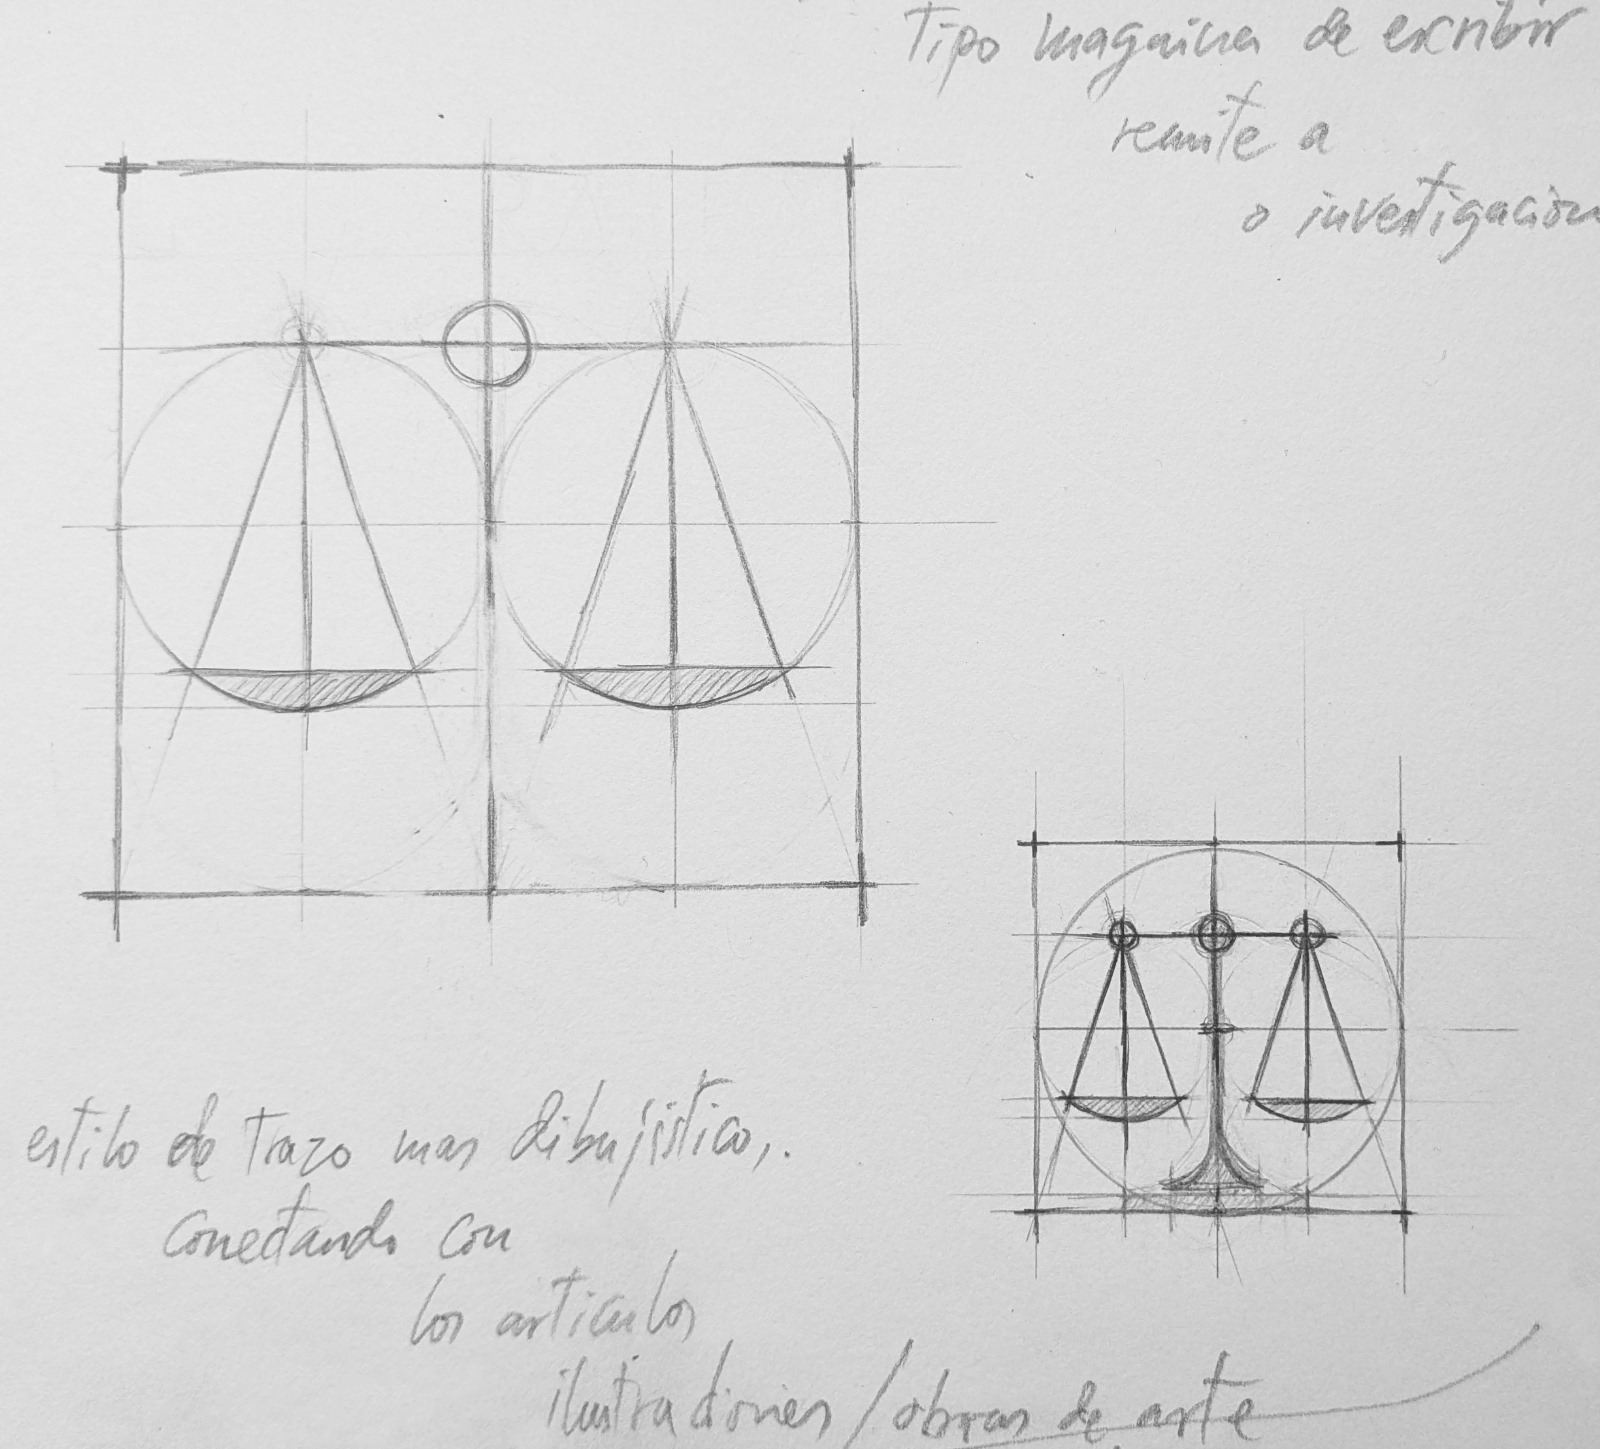 Tipo maquina de escribir
remite a
o investigación
estilo de trazo mas dibujístico,.
conectando con
los articulos
ilustraciones / obras de arte